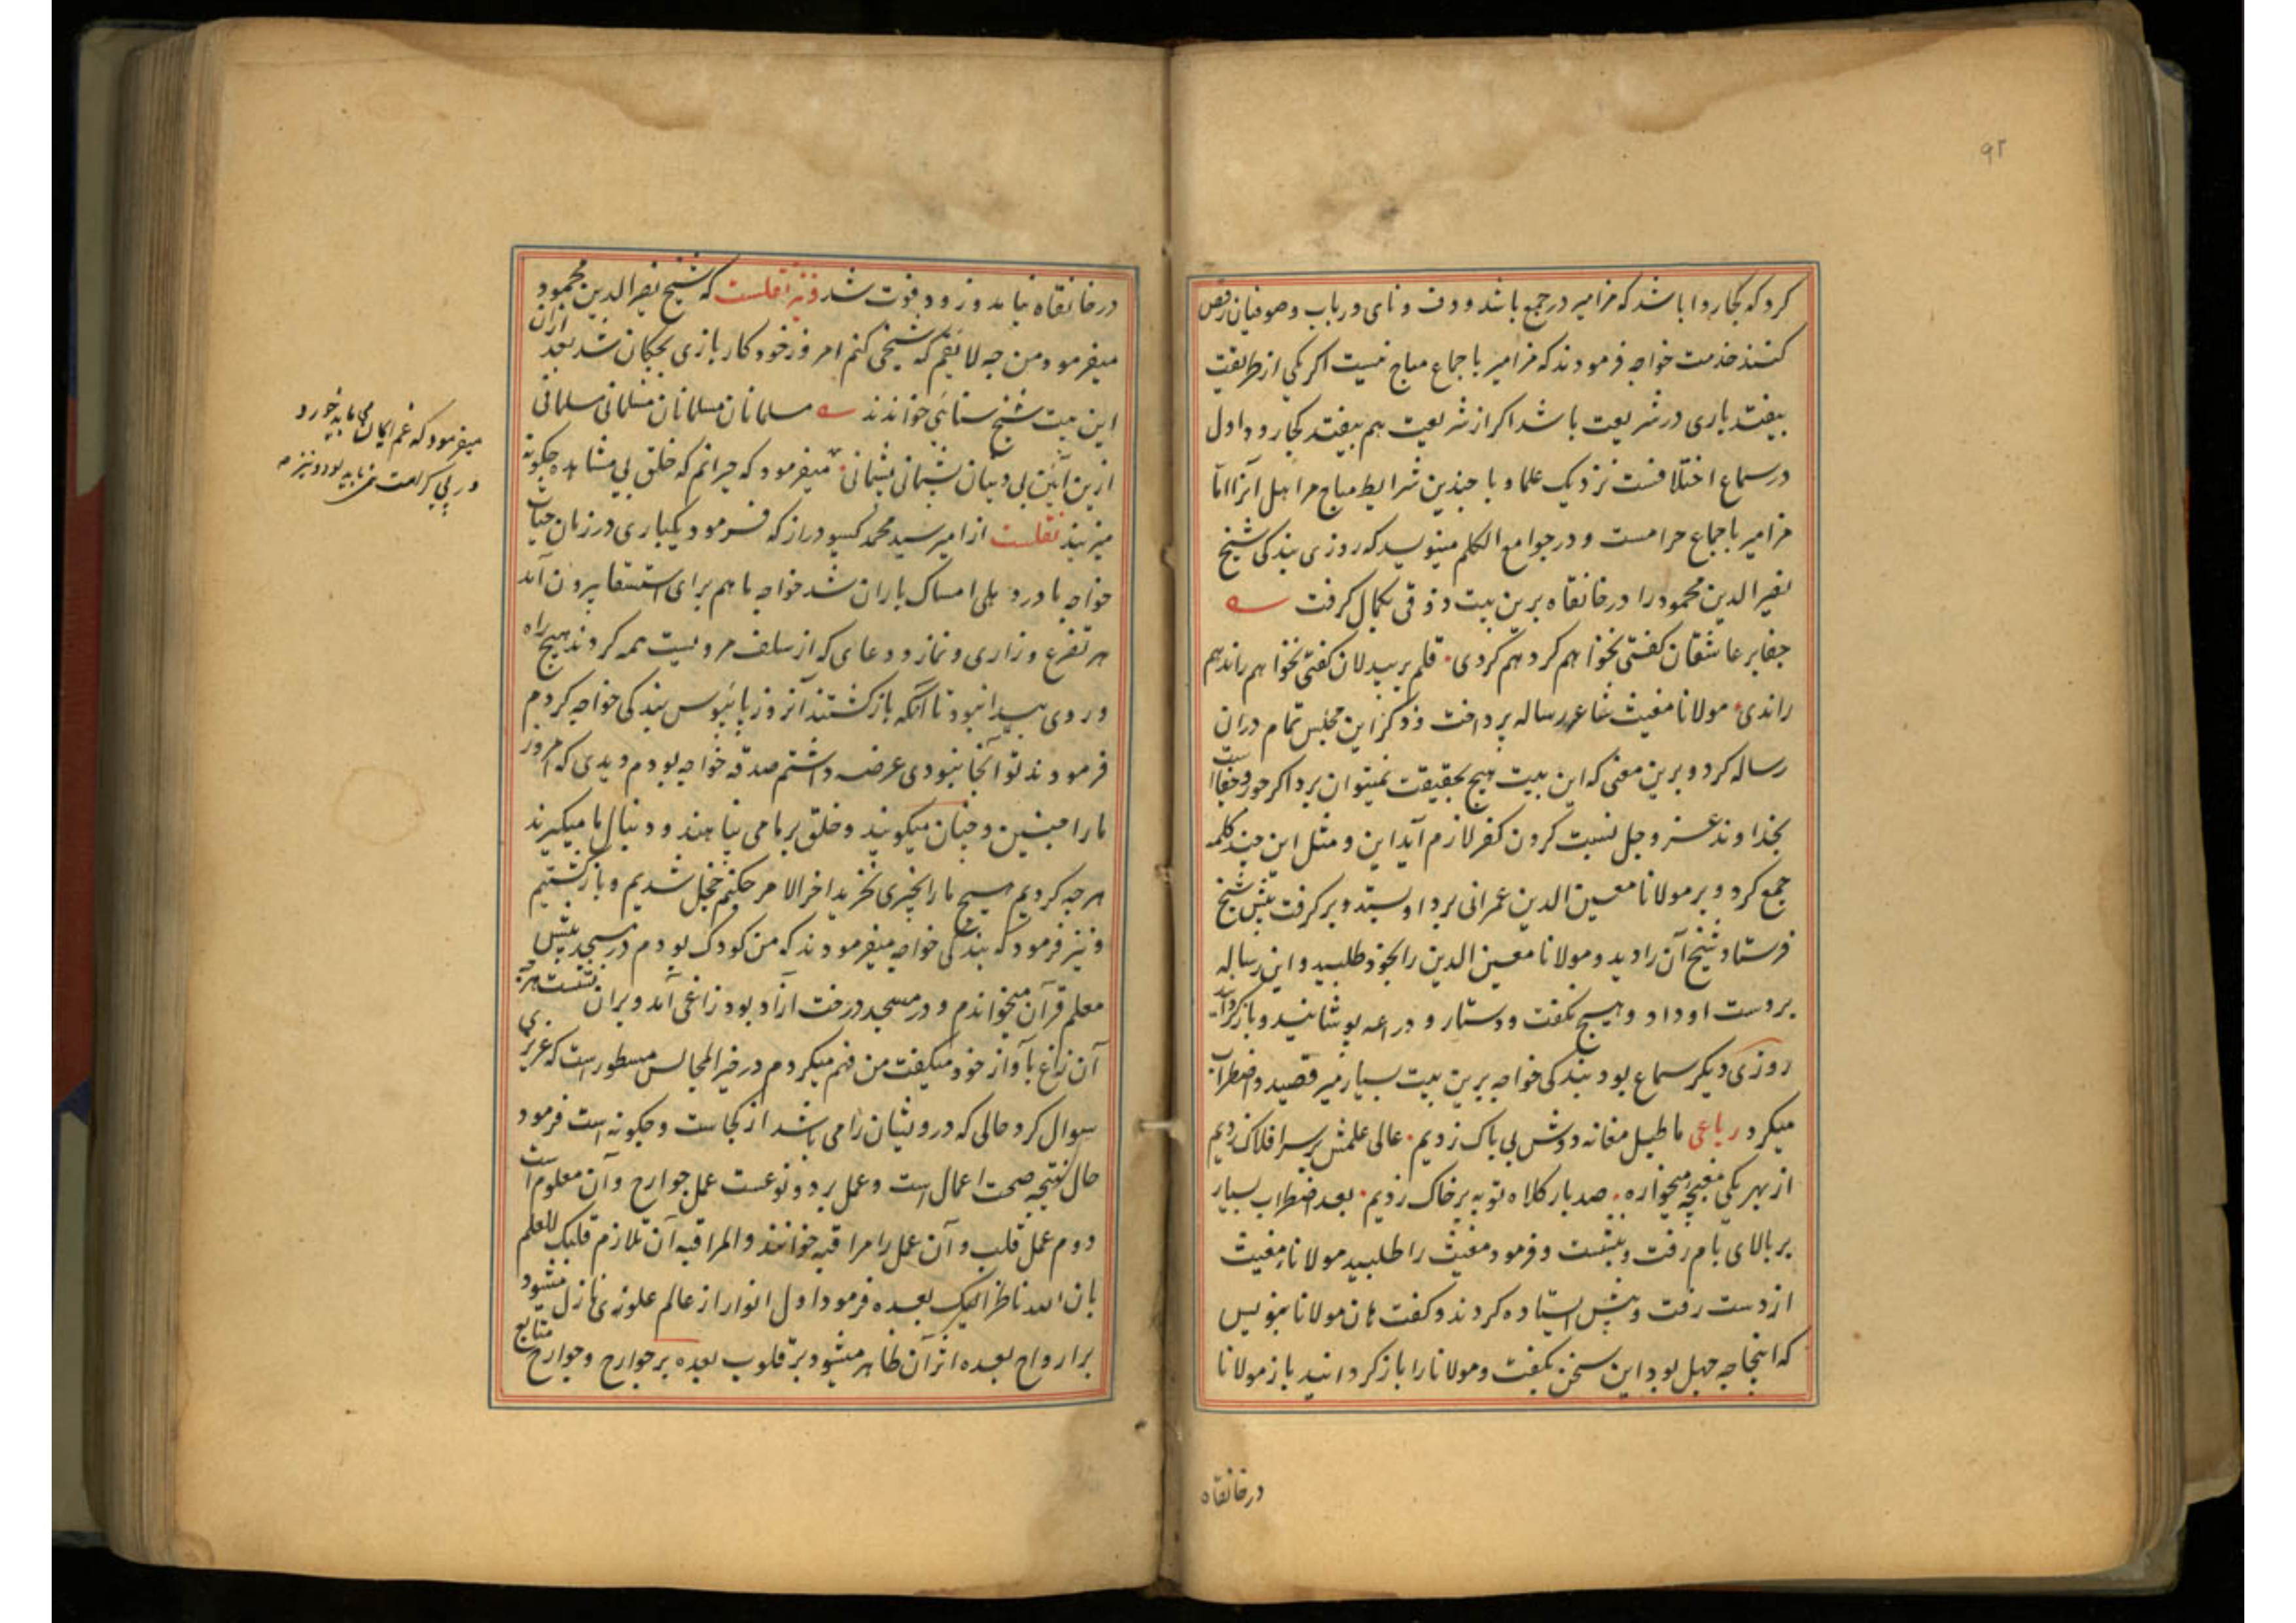 ۹۲
کرد که کجا روا باشد که مزامیر در جمع باشد و دف و نای و رباب و صوفیان رقص
کنند خدمت خواجه فرمودند که مزامیر باجماع مباح نیست اکر یکی از طریقت
بیفتد باری در شریعت باشد اکر از شریعت هم بیفتد کجا رود اول
در سماع اختلافست نزدیک علما و با چندین شرایط مباح مر اهل آنرا اما
مزامیر باجماع حرامست و در جوامع الکلم مینویسد که روزی بندکی شیخ
نصیر الدین محمود را در خانقاه برین بیت ذوقی بکمال کرفت
جفا بر عاشقان کفتی نخواهم کرد هم کردی قلم بر بیدلان کفتی نخواهم راند هم
راندی مولانا مغیث شاعر رساله پرداخت و ذکر این مجلس تمام دران
رساله کرد و برین معنی که این بیت هیچ بحقیقت نمیتوان برد اکر جور و جفا است
بخداوند عز و جل نسبت کردن کفر لازم آید این و مثل این چند کلمه
جمع کرد و بر مولانا معین الدین عمرانی برد او بستد و بر کرفت پیش شیخ
فرستاد شیخ آن را دید و مولانا معین الدین را بخود طلبید و این رساله
بردست او داد و هیچ نکفت و دستار و دراعه پوشانید و باز کردانید
روزی دیکر سماع بود بندکی خواجه برین بیت بسیار میرقصید و اضطراب
میکرد رباعی ما طبل مغانه دوش بی باک زدیم عالی علمش بر سر افلاک زدیم
از بهر یکی مغبچه میخواره صد بار کلاه توبه بر خاک زدیم بعد اضطراب بسیار
بر بالای بام رفت و بنشست و فرمود مغیث را طلبید مولانا مغیث
از دست رفت و پیش استاده کردند و کفت هان مولانا بنویس
که اینجا چه جهل بود این سخن بکفت و مولانا را باز کردانید باز مولانا
در خانقاه
در خانقاه نیامد و زود فوت شد و نیز نقلست که شیخ نصیر الدین محمود
میفرمود من چه لایقم که شیخی کنم امروز خود کار بازی بچکان شد بعد ازان
این بیت شیخ سنائی خواندند مسلمانان مسلمانان مسلمانی مسلمانی
ازین آئین بی دینان پشیمانی پشیمانی میفرمود که حیرانم که خلق بی مشاهده چکونه
میزیند نقلست از امیر سید محمد کیسودراز که فرمود یکباری در زمان حیات
خواجه ما در دهلی امساک باران شد خواجه ما هم برای استسقا بیرون آمد
هر تضرع و زاری و نماز و دعای که از سلف مرویست همه کردند هیچ راه
و روی پیدا نبود تا آنکه باز کشتند آنروز پائبوس بندکی خواجه کردم
فرمودند تو آنجا نبودی عرضه داشتم صدقه خواجه بودم دیدی که امروز
ما را چنین و چنان میکویند و خلق بر ما می پناهند و دنبال ما میکیرند
هر چه کردیم هیچ ما را بچیزی نخرید اخر الامر چکنم خجل شدیم و باز کشتیم
و نیز فرمود که بندکی خواجه میفرمودند که من کودک بودم در مسجد پیش
معلم قرآن میخواندم و در مسجد درخت ازاد بود زاغی آمد و بران نشست هر چه
آن زاغ باواز خود میکفت من فهم میکردم در خیر المجالس مسطور است که عزیزی
سوال کرد حالی که درویشان را می باشد از کجاست و چکونه است فرمود
حال نتیجه صحت اعمال است و عمل بر دو نوعست عمل جوارح و آن معلوم است
دوم عمل قلب و آن عمل را مراقبه خوانند و المراقبه آن تلازم قلبک للعلم
بان الله ناظر الیک بعده فرمود اول انوار از عالم علوی نازل میشود
بر ارواح بعده اثر آن ظاهر میشود بر قلوب بعده بر جوارح و جوارح متابع
میفرمود که غم ایمان می باید خورد
در پی کرامت نمی باید بود و نیز